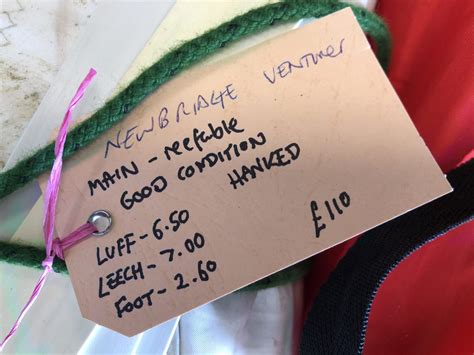 NEWBRIDGE VENTURER
MAIN - reefable
GOOD CONDITION
HANKED
LUFF - 6.50
LEECH - 7.00
FOOT - 2.60
£110